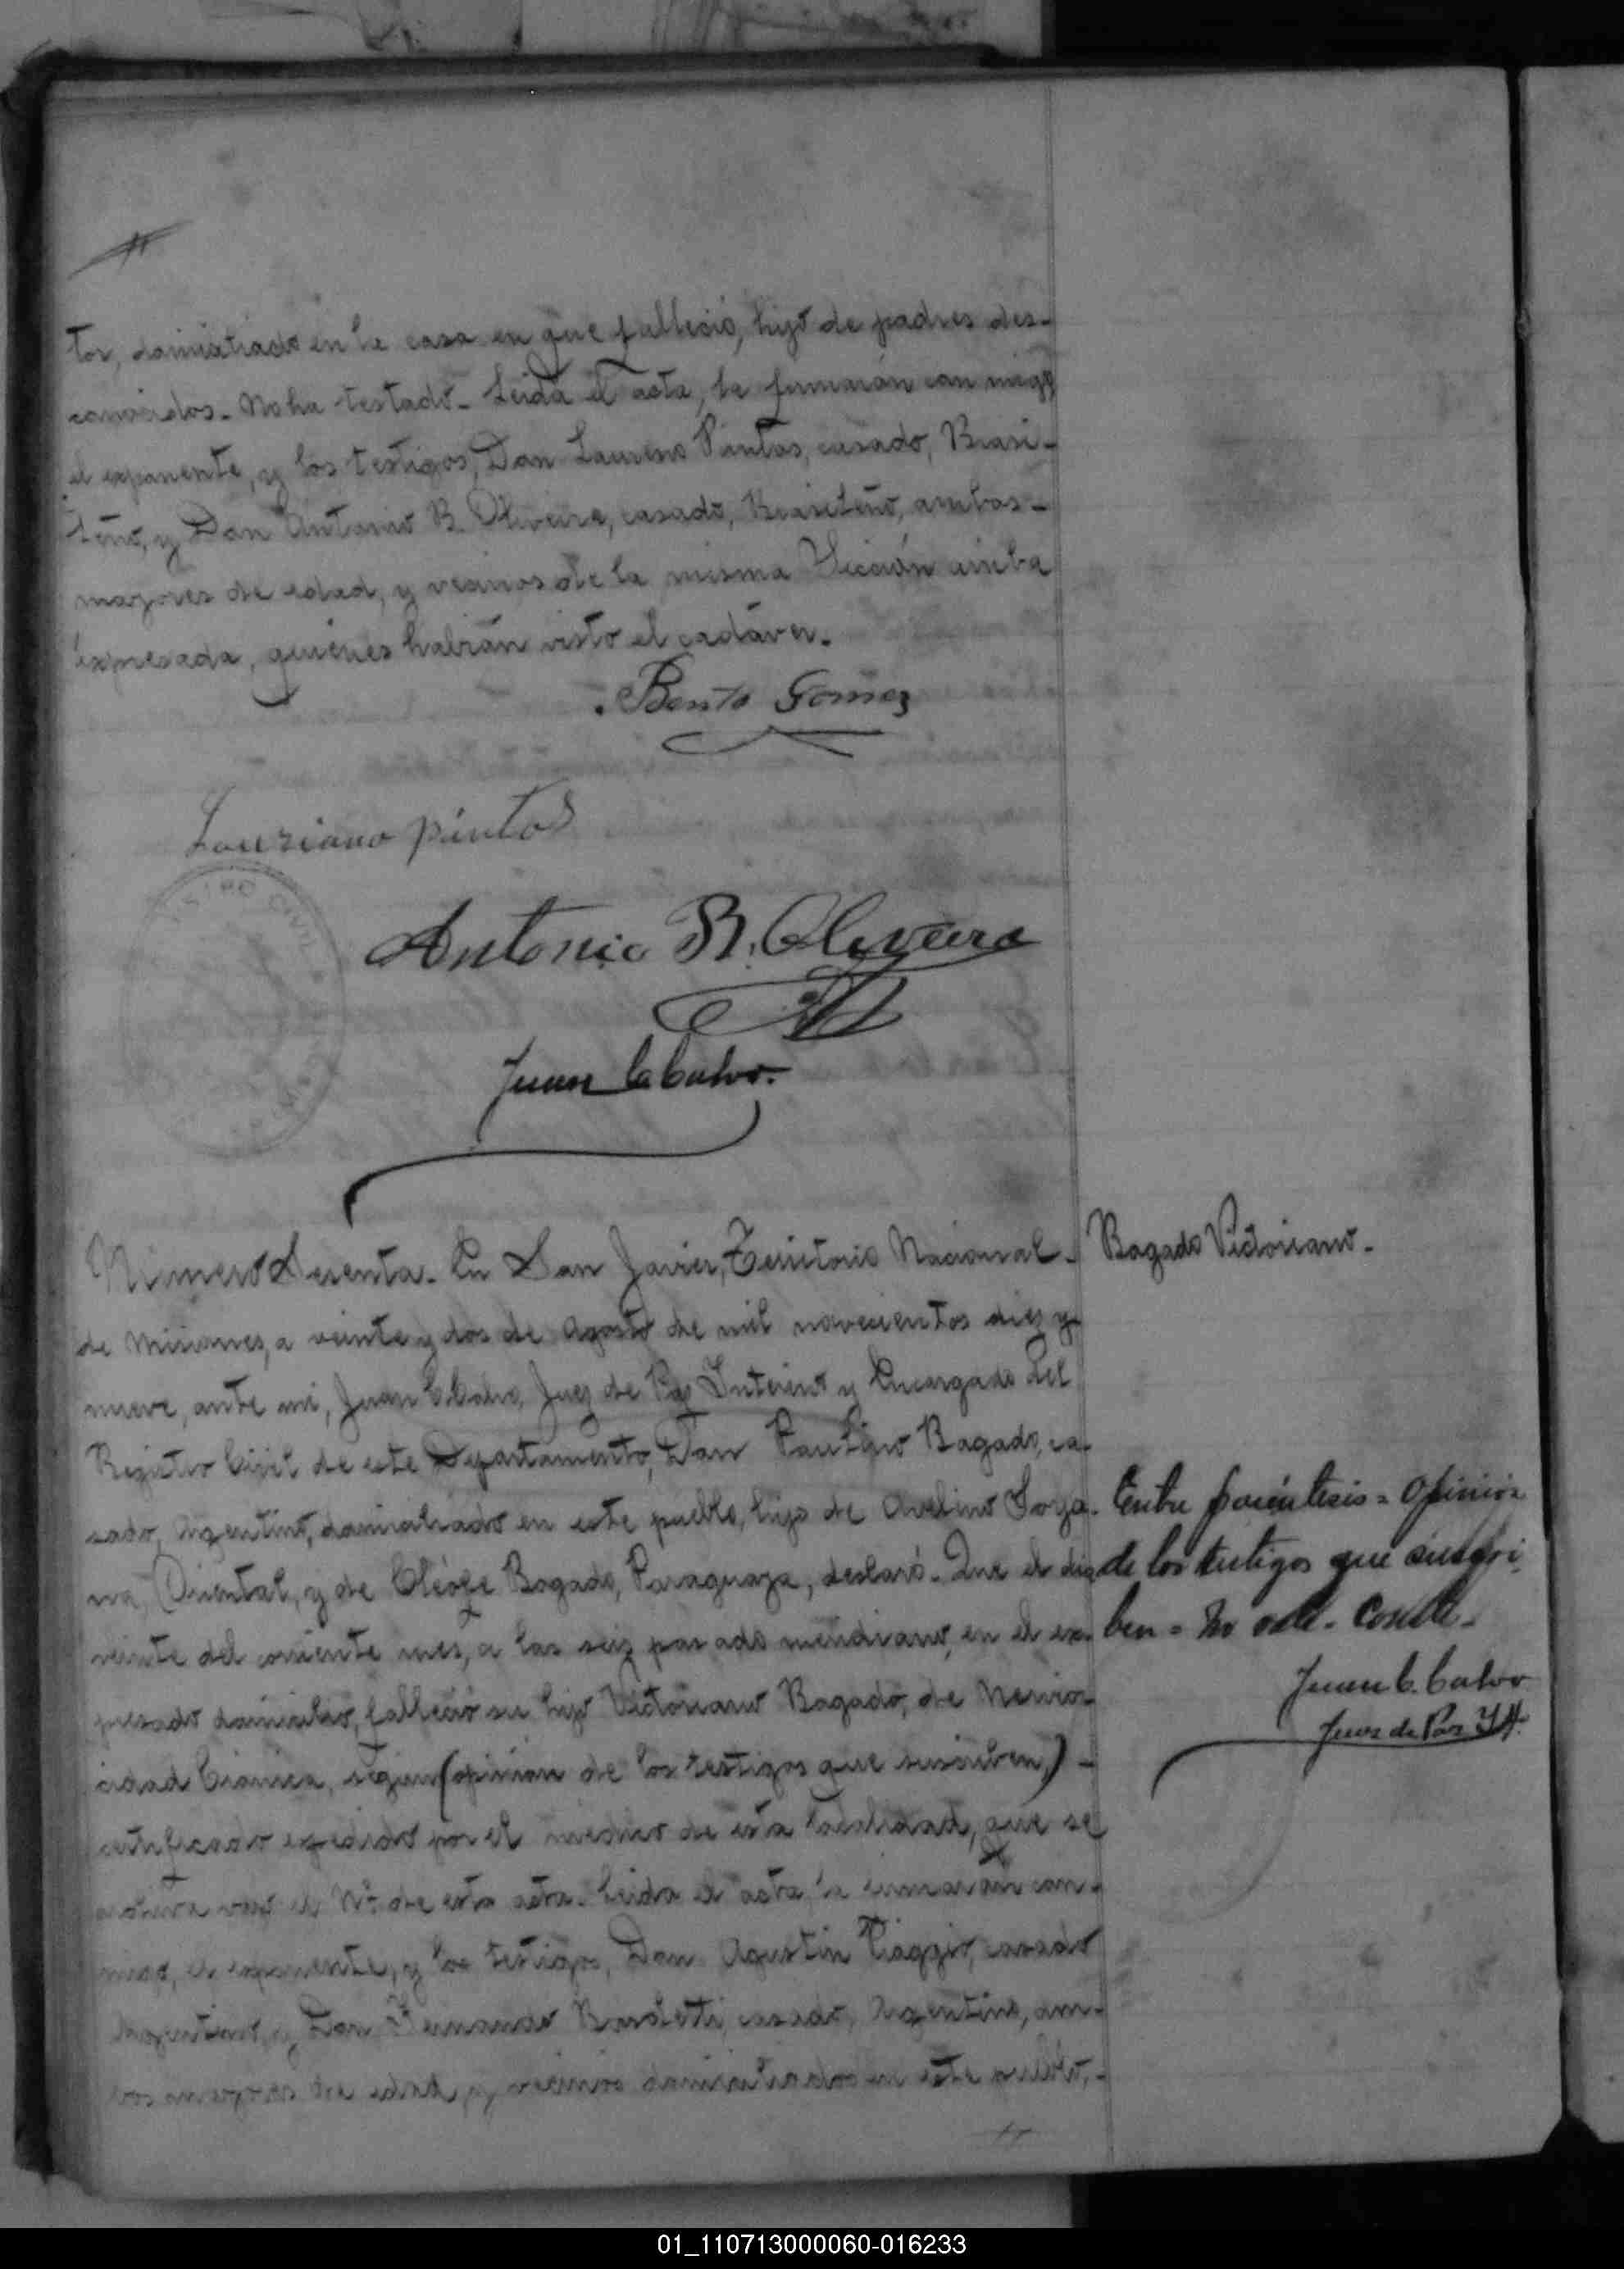 tor, domiciliado en la casa en que falleció, hijo de padres des-
conocidos. No ha testado. Leida el acta, la firmarón con migo
el exponente, y los testigos, Don Laureno Pintos, casado, Brasi-
leño, y Don Antonio B. Oliveira, casado, Brasileño, ambos-
mayores de edad, y vecinos de la misma Sección arriba
expresada, quienes habián visto el cadáver.
Bento Gomez
Lauriano pintos
Antonio B. Oliveira
Juan C. Calvo.
Número Sesenta. En San Javier, Territorio Nacional-
Bogado Victoriano.-
de Misiones, a veinte y dos de Agosto de mil novecientos diez y
nueve, ante mi, Juan C. Calvo, Juez de Paz Interino y Encargado del
Registro Civil de este Departamento, Don Paulino Bogado, ca-
sado, Argentino, domiciliado en este pueblo, hijo de Avelino
Oriental, y de Cleófe Bogado, Paraguaya, declaró. Que el dia
veinte del corriente mes, a las seis pasado meridiano, en el ex-
presado domicilio, falleció su hijo Victoriano Bogado, de
cidad Crónica, según (opinión de los testigos que suscriben,) -
certificado expedido por el médico de esta localidad, que se
archiva bajo el Nº. de esta acta. Leida el acta la firmarón con-
migo, el exponente, y los testigos, Don Agustin Piaggio, casado
Argentino, y Don Fernando casado, Argentino, am-
bos mayores de edad, y vecinos domiciliados en este pueblo,-
Entre paréntesis = Opinion
de los testigos que suscri-
ben = No vale. Conste.-
Juan C. Calvo
Juez de Paz I.
01_110713000060-016233